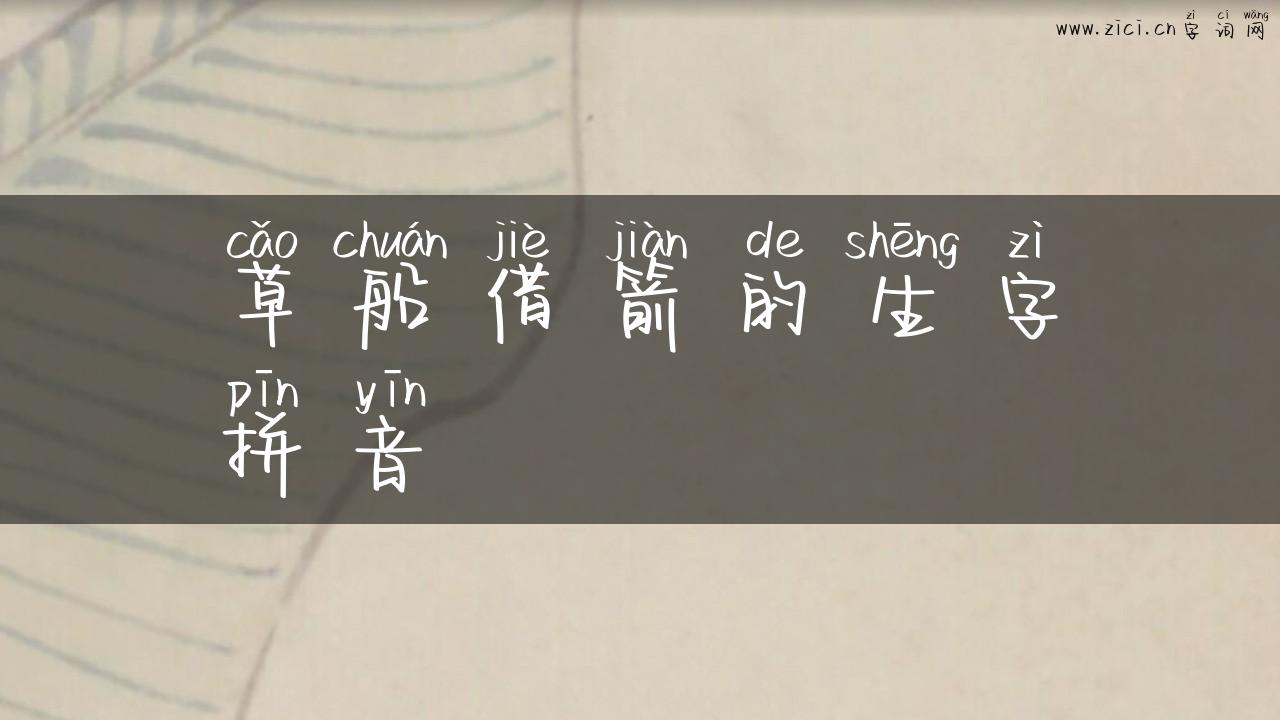 zì cí wǎng
www.zici.cn 字词网
cǎo chuán jiè jiàn de shēng zì
草船借箭的生字
pīn yīn
拼音